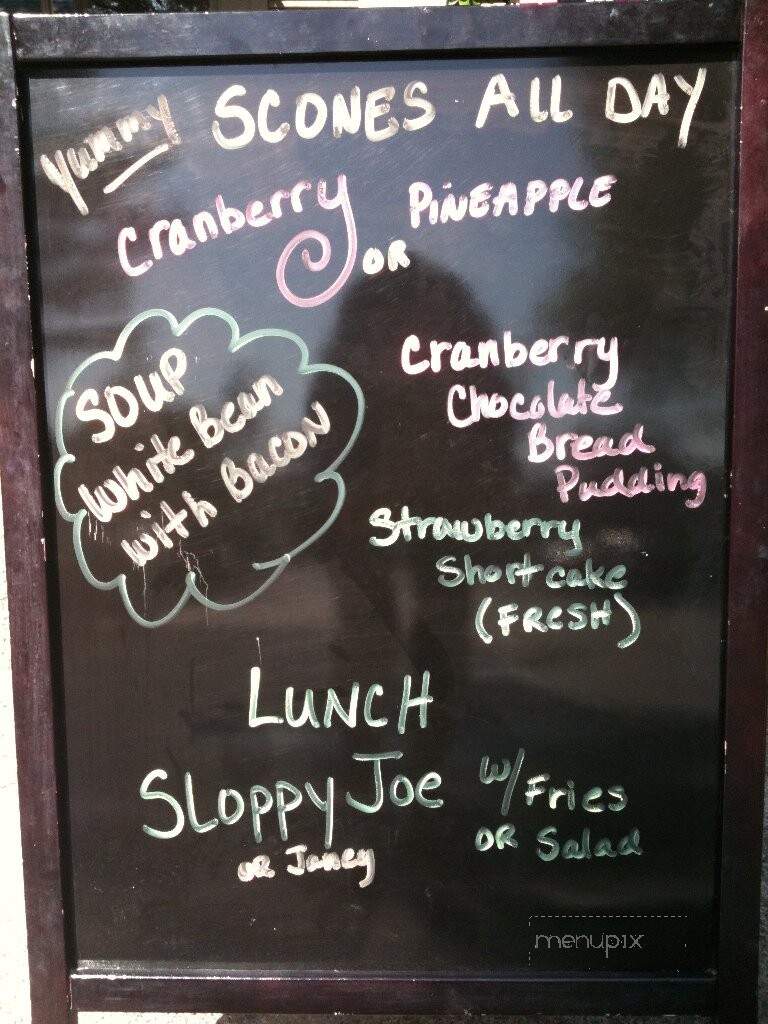 Yummy SCONES ALL DAY
Cranberry OR PINEAPPLE
SOUP
White Bean
with Bacon
Cranberry
Chocolate
Bread
Pudding
Strawberry
Shortcake
(FRESH)
LUNCH
SLOPPY JOE w/ Fries
OR Janey OR Salad
menupix